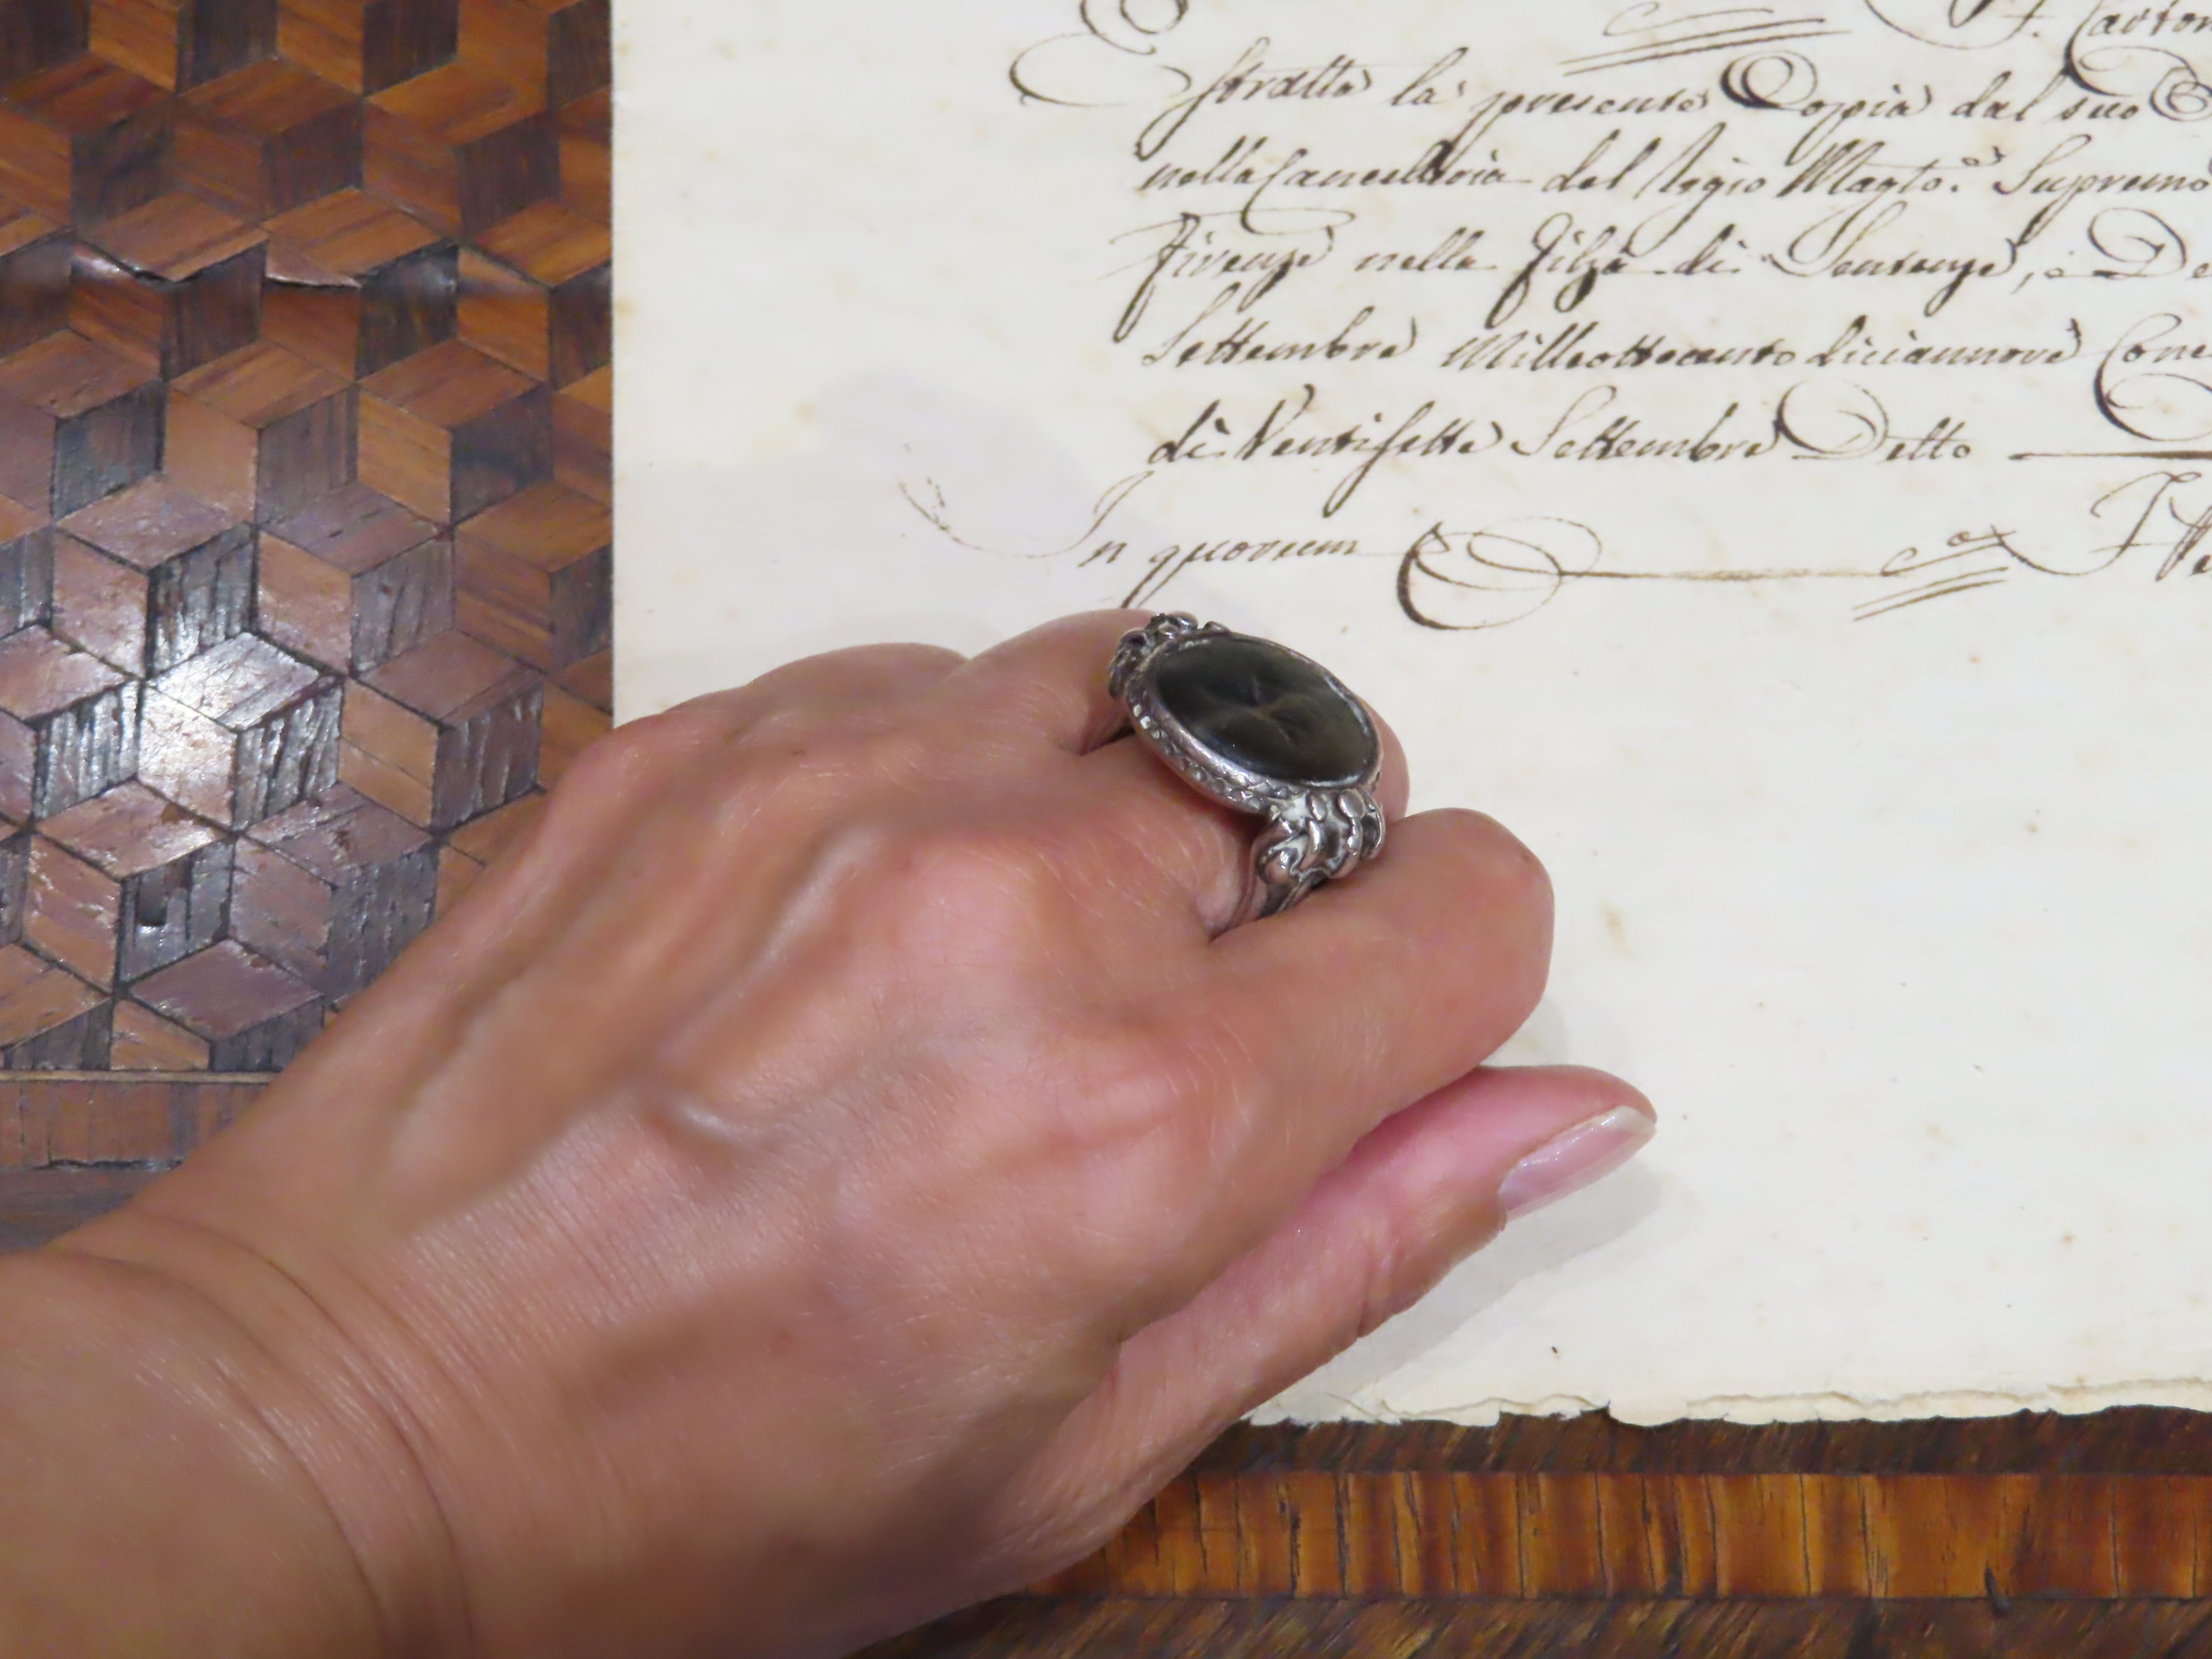 F. Carton
Estratta la presente Coppia dal suo
nella Cancelleria del Regio Magto. Supremo
Firenze nella Filza di Sentenze, e De
Settembre Milleottocento diciannove Conc
di Ventisette Settembre Detto
In quorum